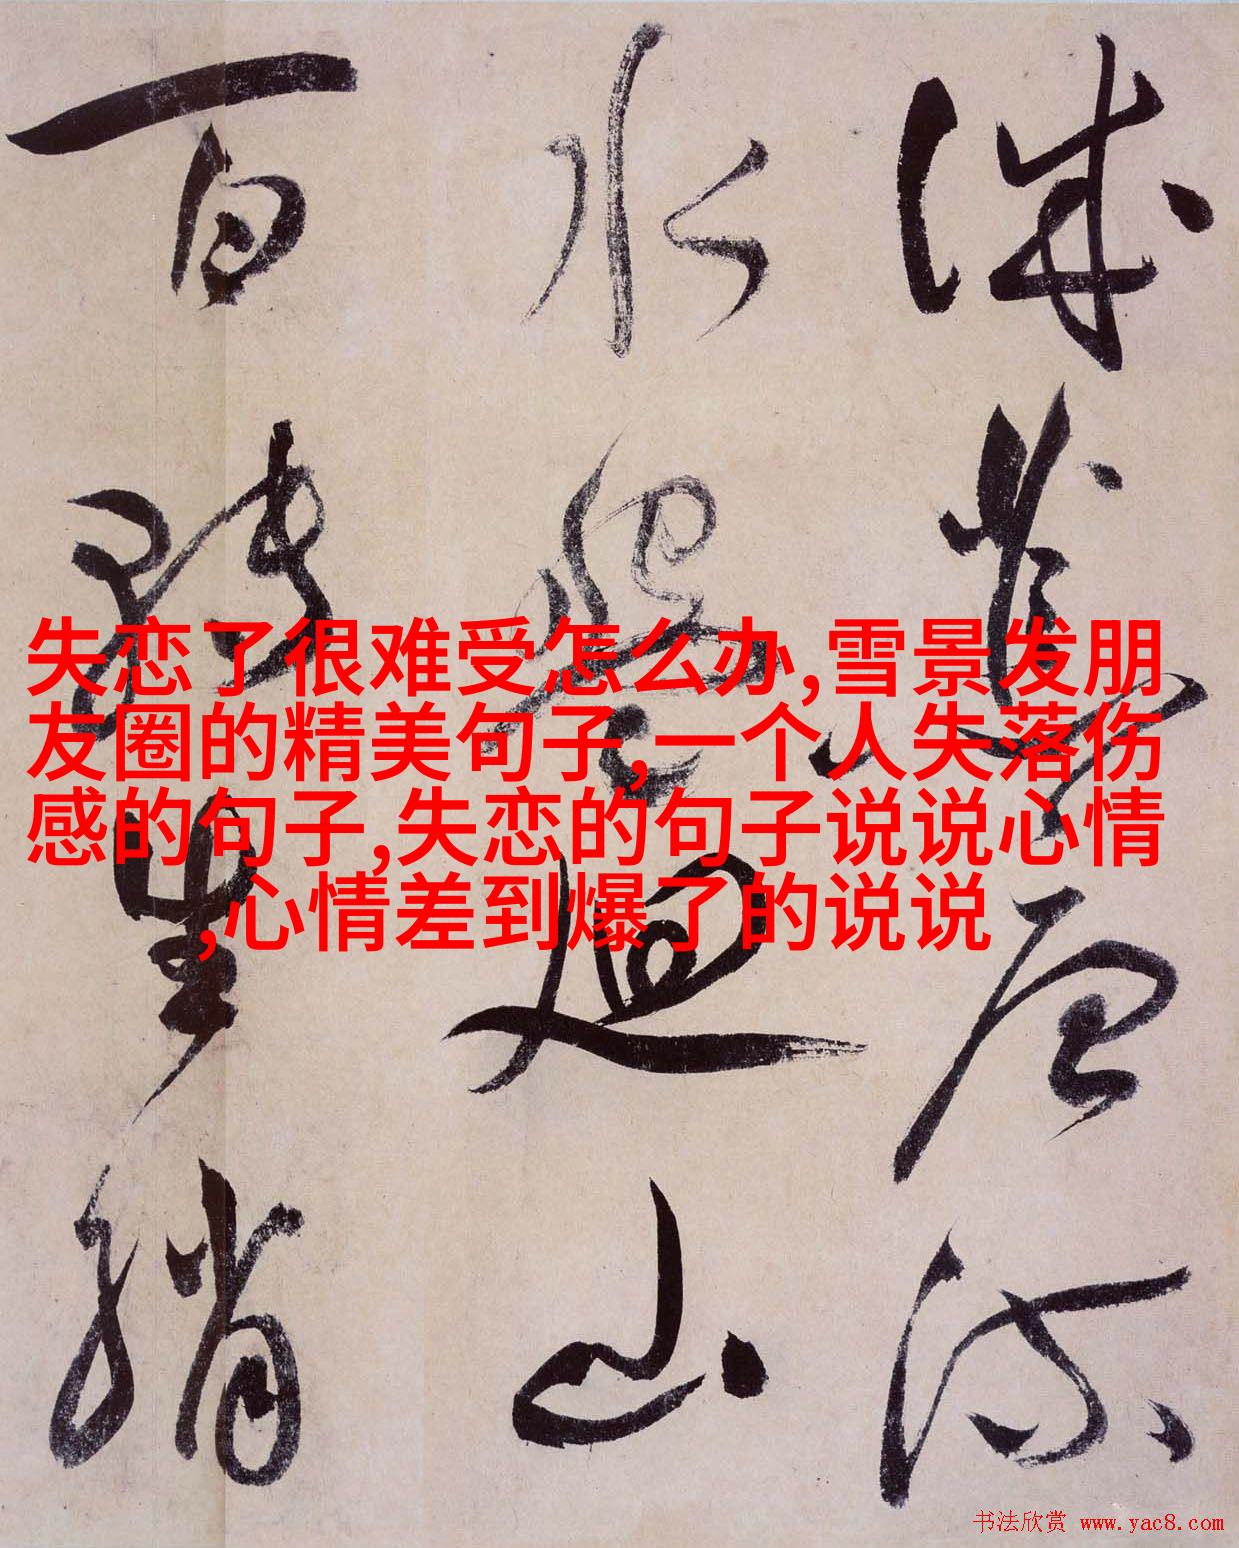 誠荒唐流
水盤迴山
百轉生綃
失恋了很难受怎么办,雪景发朋
友圈的精美句子,一个人失落伤
感的句子,失恋的句子说说心情
,心情差到爆了的说说
书法欣赏 www.yac8.com